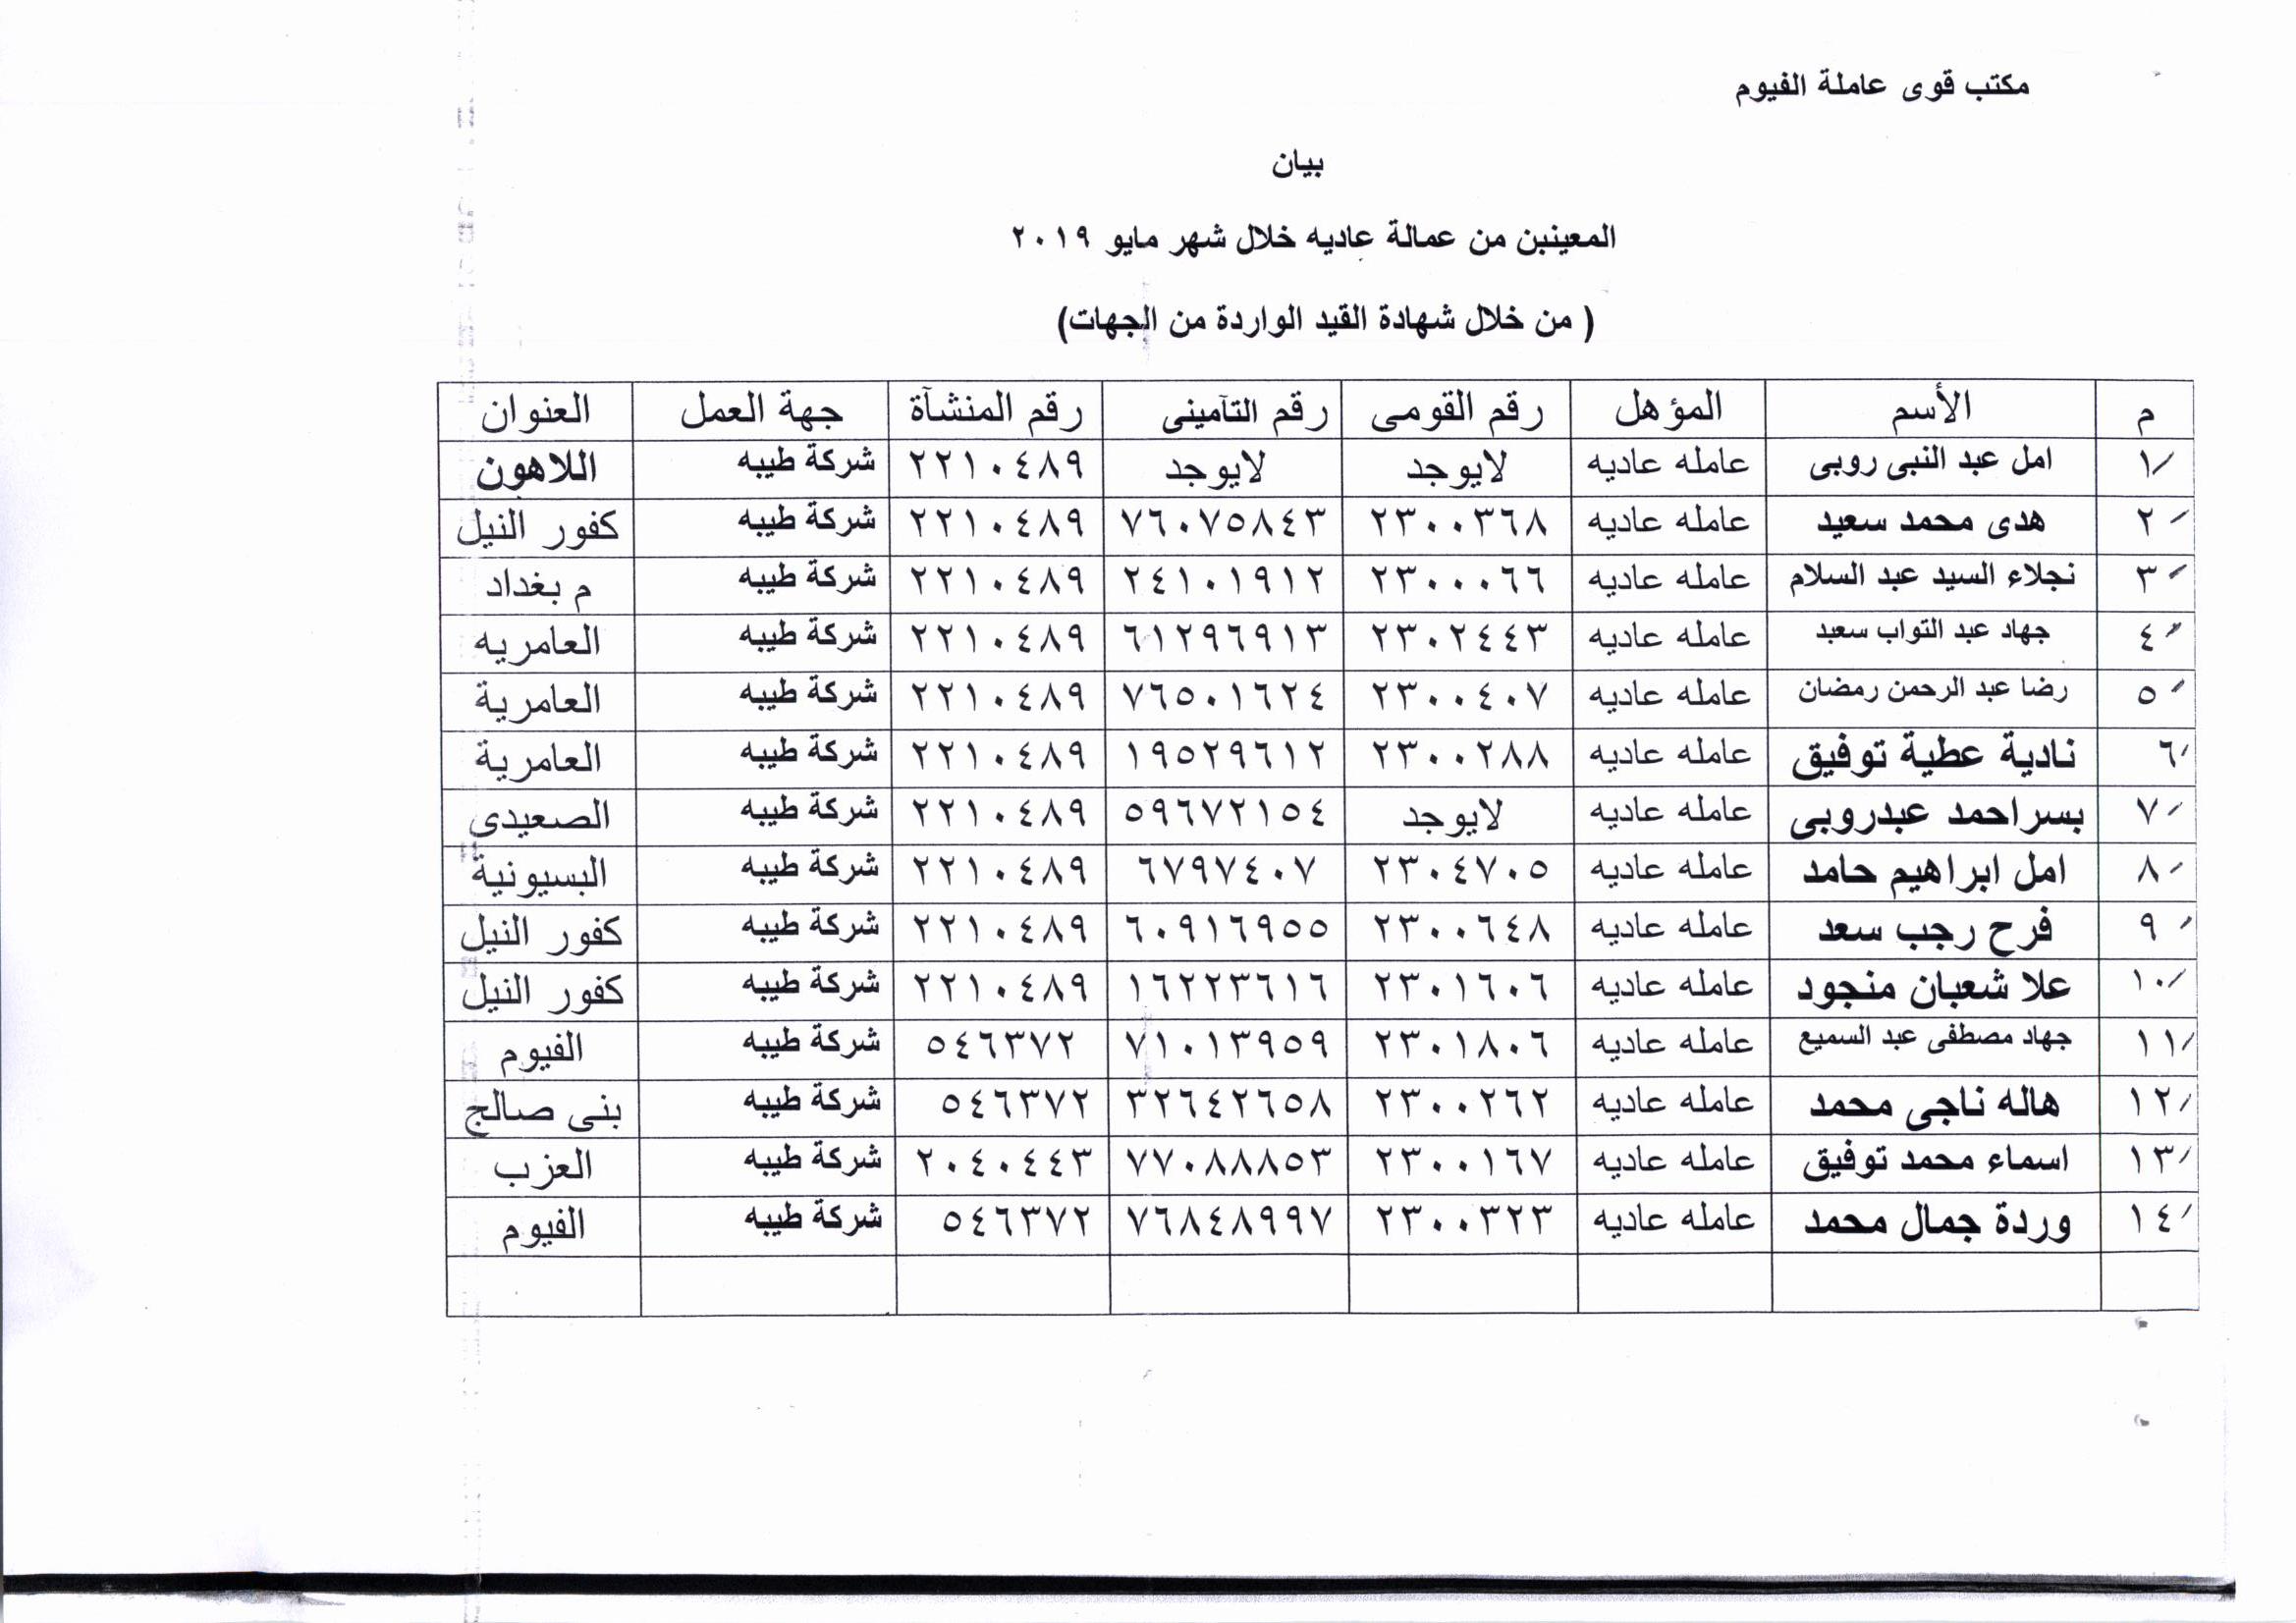 مكتب قوى عاملة الفيوم
بيان
المعينبن من عمالة عاديه خلال شهر مايو ٢٠١٩
( من خلال شهادة القيد الواردة من الجهات)
م الأسم المؤهل رقم القومى رقم التآمينى رقم المنشآة جهة العمل العنوان
١ امل عبد النبى روبى عامله عاديه لايوجد لايوجد ٢٢١٠٤٨٩ شركة طيبه اللاهون
٢ هدى محمد سعيد عامله عاديه ٢٣٠٠٣٦٨ ٧٦٠٧٥٨٤٣ ٢٢١٠٤٨٩ شركة طيبه كفور النيل
٣ نجلاء السيد عبد السلام عامله عاديه ٢٣٠٠٠٦٦ ٢٤١٠١٩١٢ ٢٢١٠٤٨٩ شركة طيبه م بغداد
٤ جهاد عبد التواب سعبد عامله عاديه ٢٣٠٢٤٤٣ ٦١٢٩٦٩١٣ ٢٢١٠٤٨٩ شركة طيبه العامريه
٥ رضا عبد الرحمن رمضان عامله عاديه ٢٣٠٠٤٠٧ ٧٦٥٠١٦٢٤ ٢٢١٠٤٨٩ شركة طيبه العامرية
٦ نادية عطية توفيق عامله عاديه ٢٣٠٠٢٨٨ ١٩٥٢٩٦١٢ ٢٢١٠٤٨٩ شركة طيبه العامرية
٧ بسراحمد عبدروبى عامله عاديه لايوجد ٥٩٦٧٢١٥٤ ٢٢١٠٤٨٩ شركة طيبه الصعيدى
٨ امل ابراهيم حامد عامله عاديه ٢٣٠٤٧٠٥ ٦٧٩٧٤٠٧ ٢٢١٠٤٨٩ شركة طيبه البسيونية
٩ فرح رجب سعد عامله عاديه ٢٣٠٠٦٤٨ ٦٠٩١٦٩٥٥ ٢٢١٠٤٨٩ شركة طيبه كفور النيل
١٠ علا شعبان منجود عامله عاديه ٢٣٠١٦٠٦ ١٦٢٢٣٦١٦ ٢٢١٠٤٨٩ شركة طيبه كفور النيل
١١ جهاد مصطفى عبد السميع عامله عاديه ٢٣٠١٨٠٦ ٧١٠١٣٩٥٩ ٥٤٦٣٧٢ شركة طيبه الفيوم
١٢ هاله ناجى محمد عامله عاديه ٢٣٠٠٢٦٢ ٣٢٦٤٢٦٥٨ ٥٤٦٣٧٢ شركة طيبه بنى صالح
١٣ اسماء محمد توفيق عامله عاديه ٢٣٠٠١٦٧ ٧٧٠٨٨٨٥٣ ٢٠٤٠٤٤٣ شركة طيبه العزب
١٤ وردة جمال محمد عامله عاديه ٢٣٠٠٣٢٣ ٧٦٨٤٨٩٩٧ ٥٤٦٣٧٢ شركة طيبه الفيوم